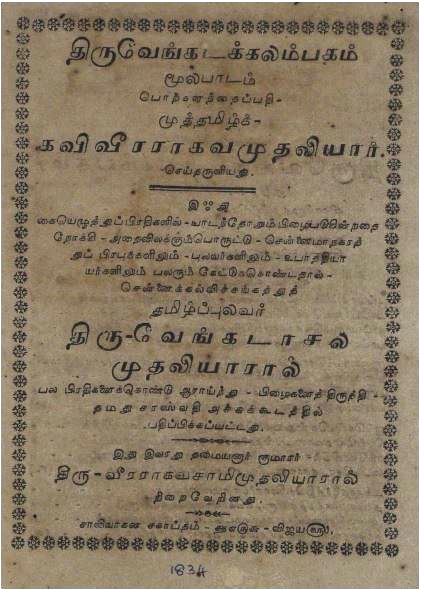 திருவேங்கடக்கலம்பகம்
மூலபாடம்
முத்தமிழ்க்-
கவிவீரராகவமுதலியார்.
செய்தருளியது.
இஃது
கையெழுத்துப் பிரதிகளில் - யாடந்தோறும் பிழைபடுகின்றதை
நோக்கி - அதைவிலக்கும்பொருட்டு - சென்னைமாநகரத்
துப் பிரபுக்களிலும் - புலவர்களிலும் - உபாத்தியா
யர்களிலும் பலரும் கேட்டுக்கொண்டதால் -
சென்னைக்கல்விச்சங்கத்துத்
தமிழ்ப்புலவர்
திரு-வேங்கடாசல
முதலியாரால்
பல பிரதிகளைக்கொண்டு ஆராய்ந்து - பிழைகளைத்திருத்தி -
தமது சரஸ்வதி அச்சுக்கூடத்தில்
பதிப்பிக்கப்பட்டது.
இது இவரது தமையனார் குமாரர்
திரு - வீரராகவசாமிமுதலியாரால்
நிறைவேறினது.
சாலிவாகன சகாப்தம் -
விஜய
1834